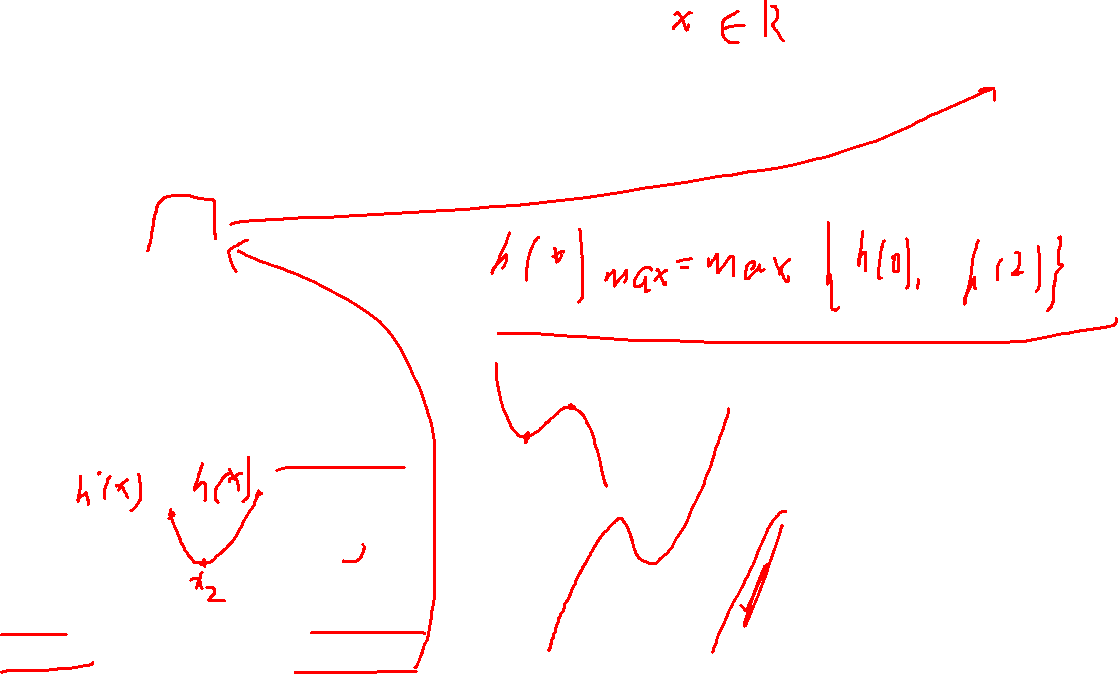 x ∈ R
h(x)max = max {h(0), h(2)}
h'(x) h(x)
x₂